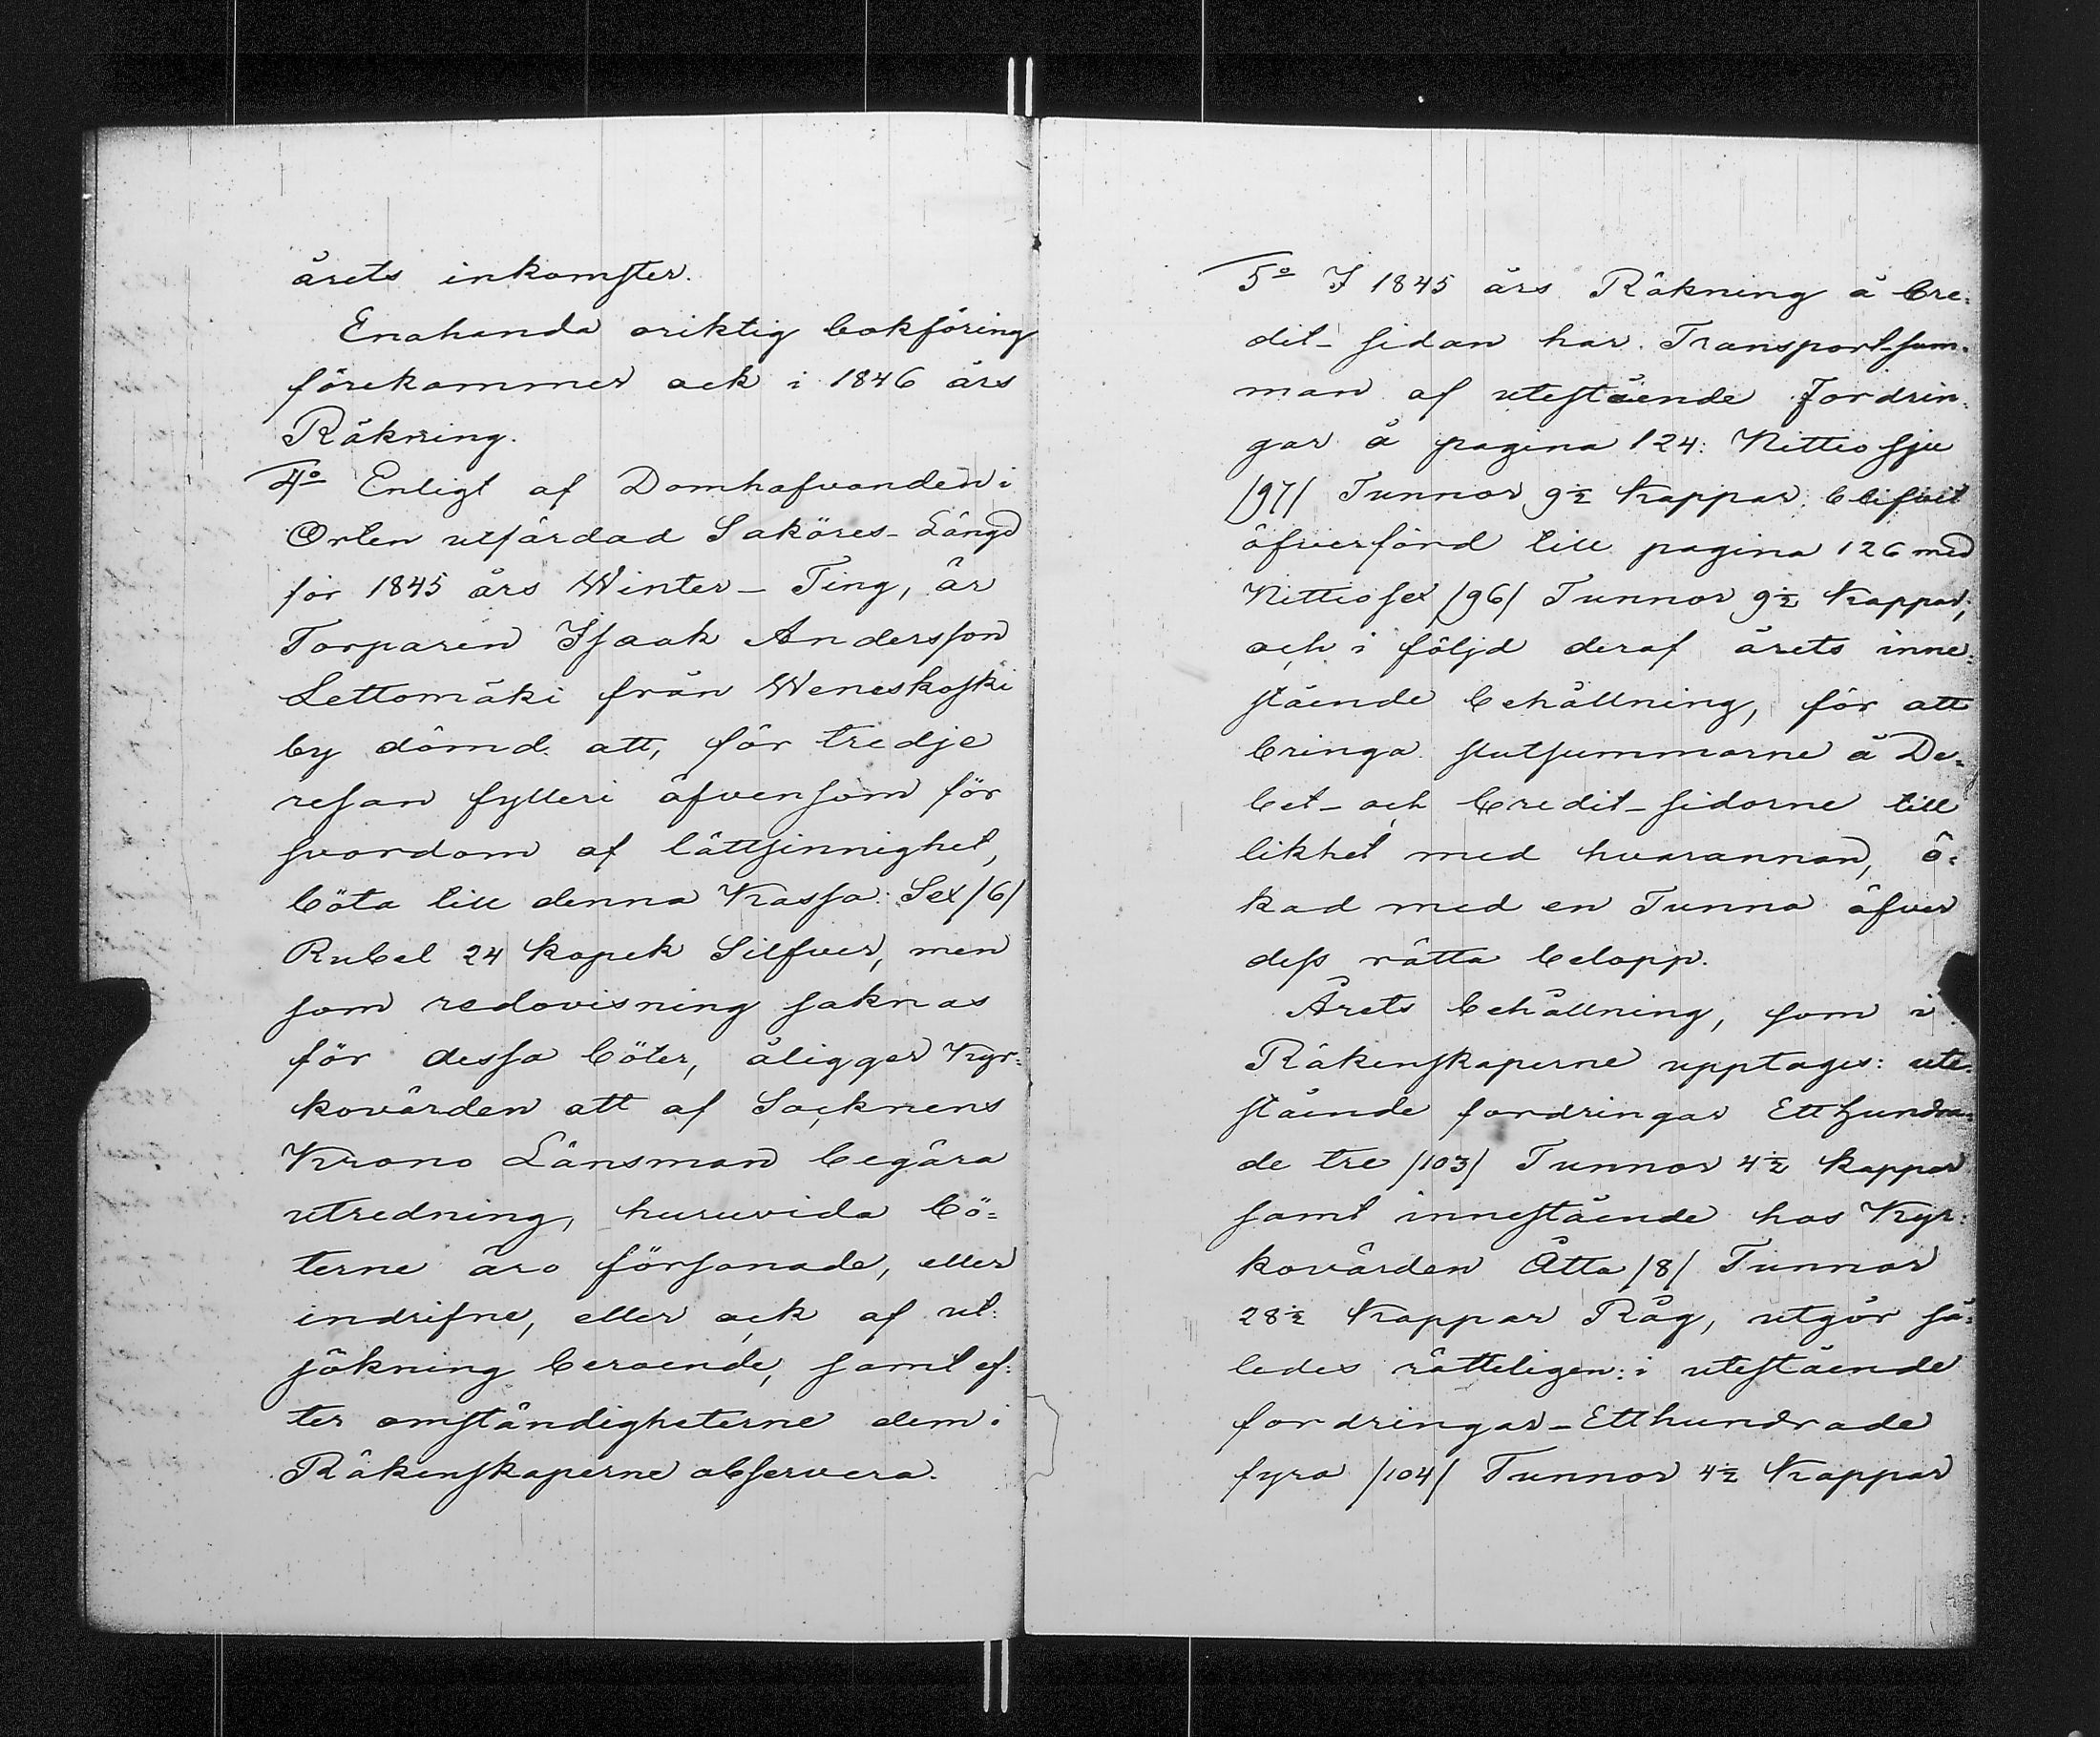 årets inkomster.
Enahanda oriktig bokföring
förekommer ock i 1846 års
Räkning.
4o Enligt af Domhafvanden i
Orten utfärdad Saköres-Längd
för 1845 års Winter-Ting, är
Torparen Isaak Andersson
Lettomäki från Weneskoski
by dömd att, för tredje
resan fylleri äfvensom för
svordom af lättsinnighet,
böta till denna Kassa: Sex /6/
Rubel 24 kopek Silfver, men
som redovisning saknas
för dessa böter, åligger Kyr=
kovärden att af Socknens
Krono Länsman begära
utredning, huruvida bö=
terne äro försonade, eller
indrifne, eller ock af ut=
sökning beroende, samt ef=
ter omständigheterne dem i
Räkenskaperne observera.
5o I 1845 års Räkning å Cre=
dit-sidan har Transport-sum=
man af utestående Fordrin=
gar å pagina 124: Nittiosju
/97/ Tunnor 9½ Kappar, blifvit
öfverförd till pagina 126 med
Nittiosex /96/ Tunnor 9½ Kappar,
och i följd deraf årets inne=
stående behållning, för att
bringa slutsummorne å De=
bet- och Credit-sidorne till
likhet med hvarannan, ö=
kad med en Tunna öfver
dess rätta belopp.
Årets behållning, som i
Räkenskaperne upptages: ute=
stående fordringar Etthundra=
de tre /103/ Tunnor 4½ kappar
samt innestående hos Kyr=
kovärden Åtta /8/ Tunnor
28½ Kappar Råg, utgör så=
ledes rätteligen: i utestående
fordringar - Etthundrade
fyra /104/ Tunnor 4½ Kappar